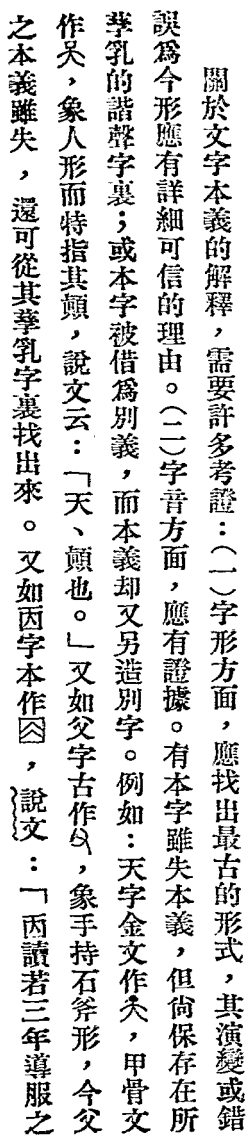 關於文字本義的解釋，需要許多考證：（一）字形方面，應找出最古的形式，其演變或錯
誤爲今形應有詳細可信的理由。（二）字音方面，應有證據。有本字雖失本義，但尙保存在所
孳乳的諧聲字裏；或本字被借爲別義，而本義却又另造別字。例如：天字金文作，甲骨文
作，象人形而特指其顚，說文云：「天、顚也。」又如父字古作，象手持石斧形，今父
之本義雖失，還可從其孳乳字裏找出來。又如㐁字本作，說文：「㐁讀若三年導服之